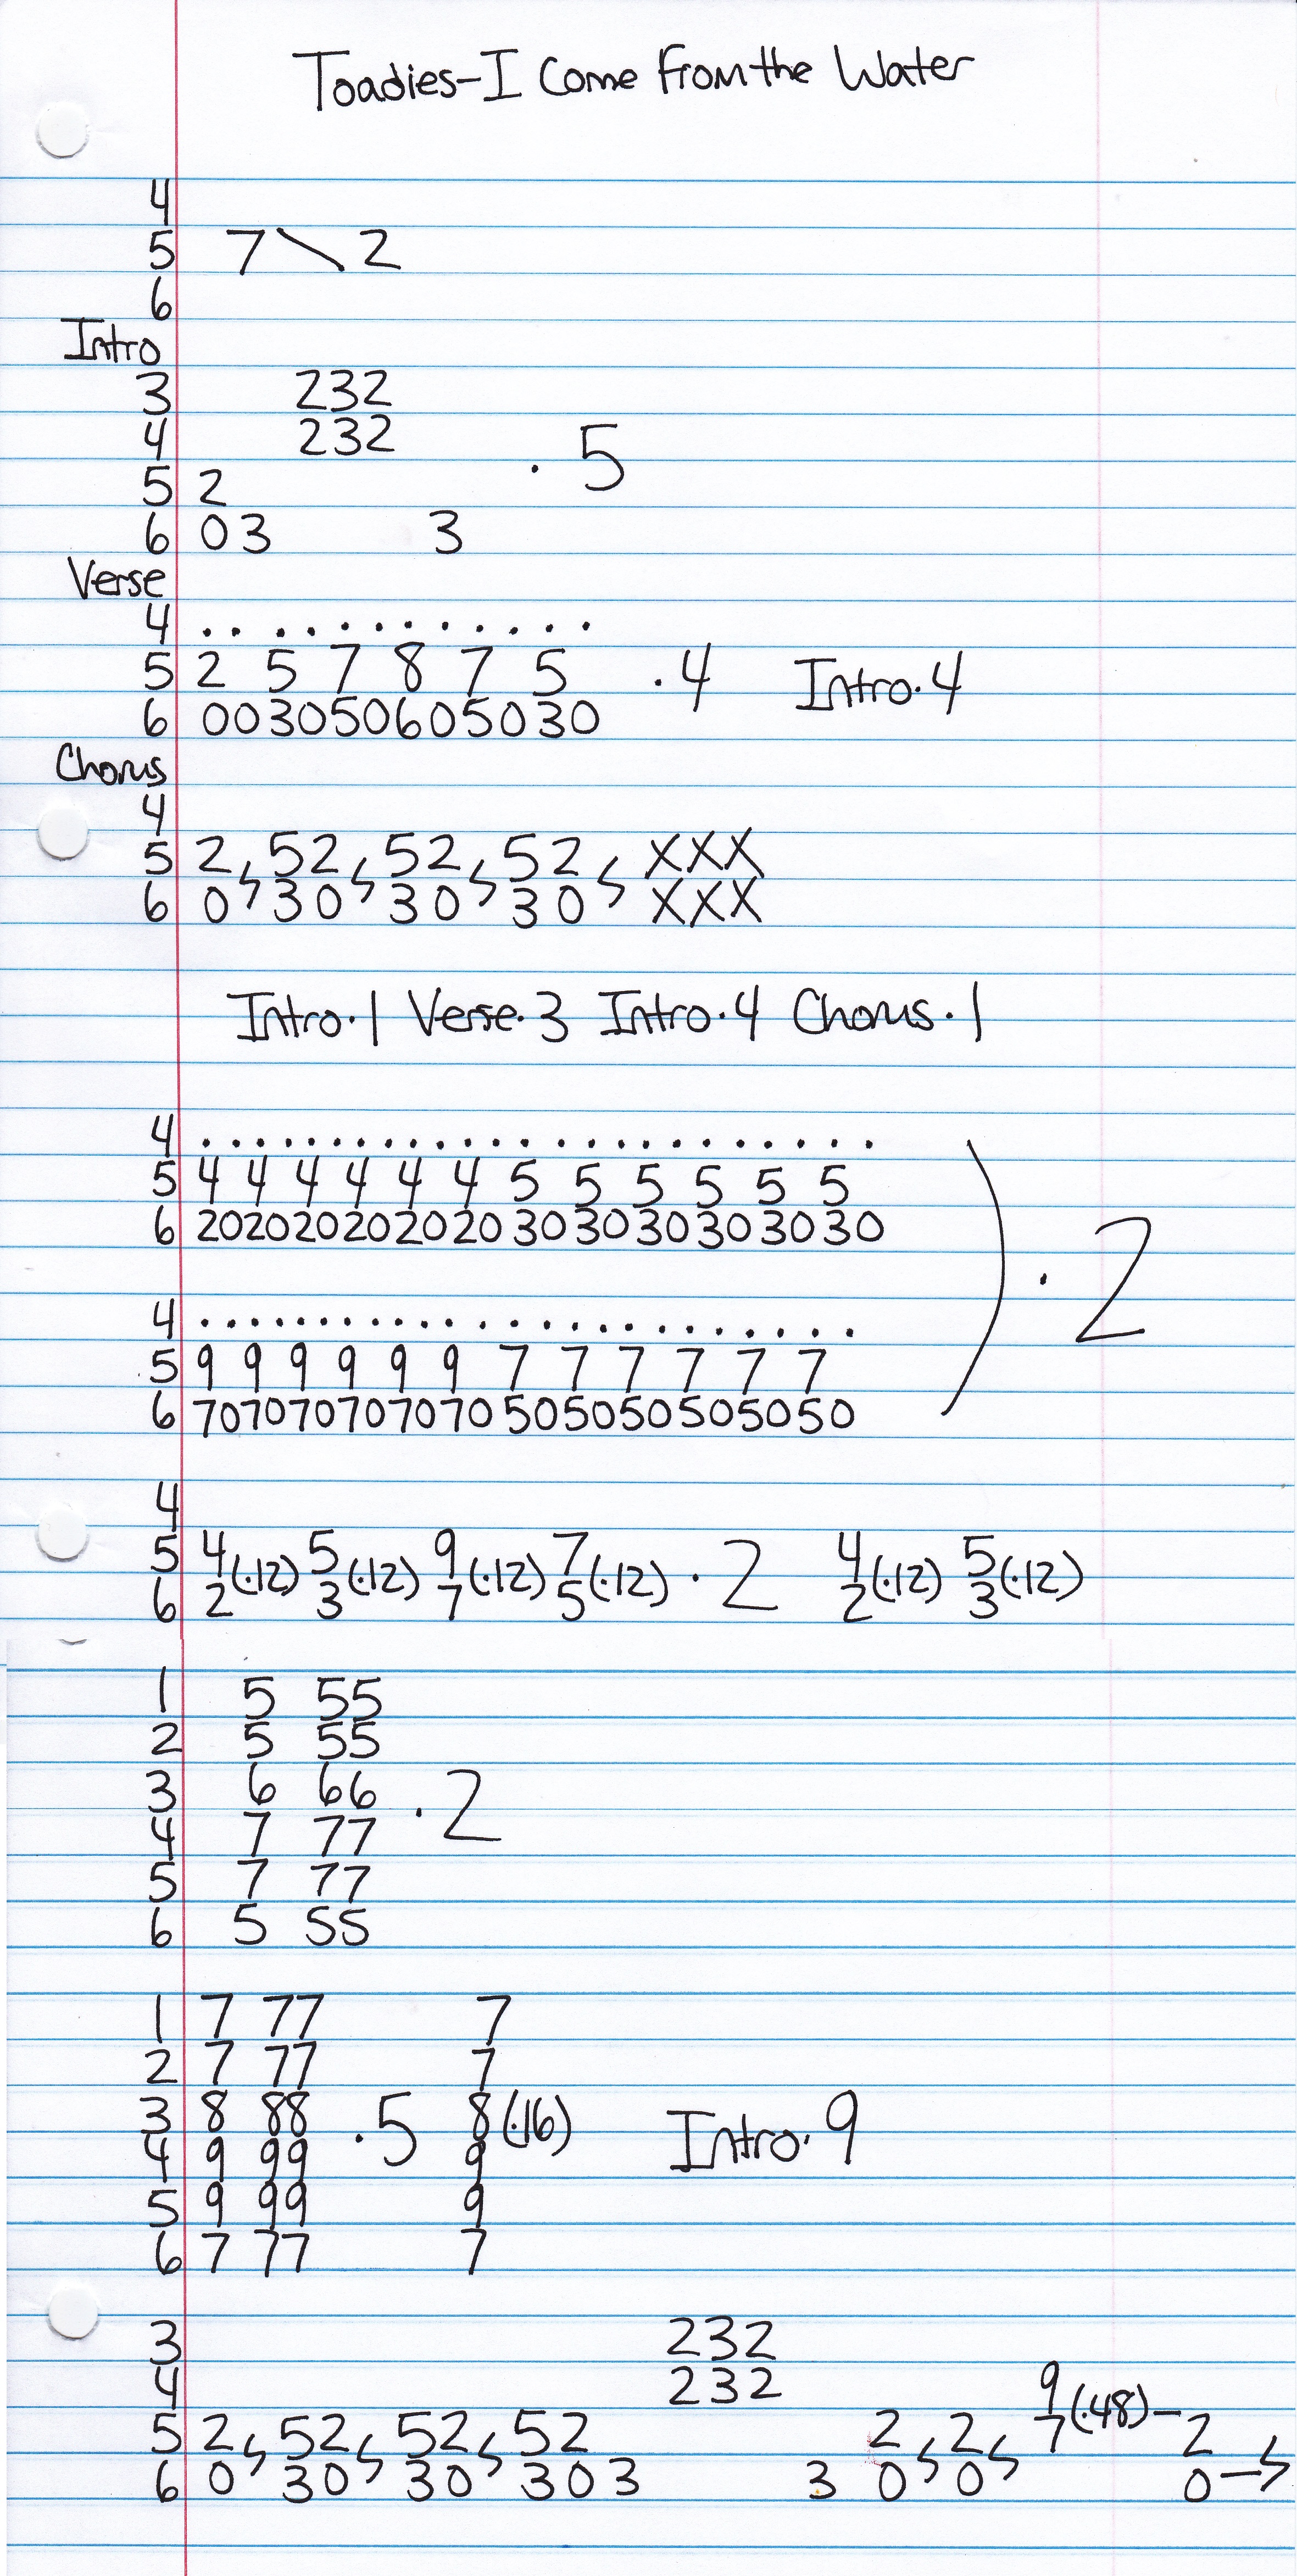 Toadies-I Come from the Water
4
5 7\2
6
Intro
3 232
4 232
5 2
6 03 3
· 5
Verse
4 . . . . . . . . . . . .
5 2 5 7 8 7 5
6 003050605030
·4 Intro·4
Chorus
4
5 2 52 52 52 XXX
6 0 30 30 30 XXX
Intro·1 Verse·3 Intro·4 Chorus·1
4 . . . . . . . . . . . . . . . . . . . . . . . .
5 4 4 4 4 4 4 5 5 5 5 5 5
6 202020202020303030303030
) · 2
4 . . . . . . . . . . . . . . . . . . . . . . . .
5 9 9 9 9 9 9 7 7 7 7 7 7
6 707070707070505050505050
4
5 4(·12) 5(·12) 9(·12) 7(·12) · 2 4(·12) 5(·12)
6 2 3 7 5 2 3
1 5 55
2 5 55
3 6 66
4 7 77
5 7 77
6 5 55
· 2
1 7 77 7
2 7 77 7
3 8 88 ·5 8(·16) Intro·9
4 9 99 9
5 9 99 9
6 7 77 7
3 232
4 232 9(·48)-
5 2 52 52 52 2 2 7 2
6 0 30 30 303 3 0 0 0-